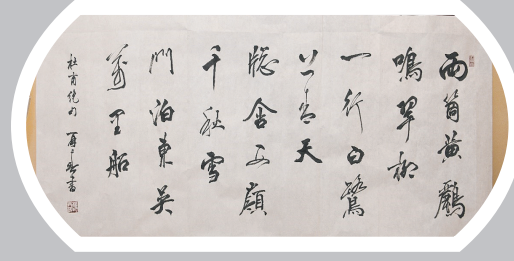 兩箇黃鸝
鳴翠柳
一行白鷺
上青天
窗含西嶺
千秋雪
門泊東吳
萬里船
杜甫絕句 書